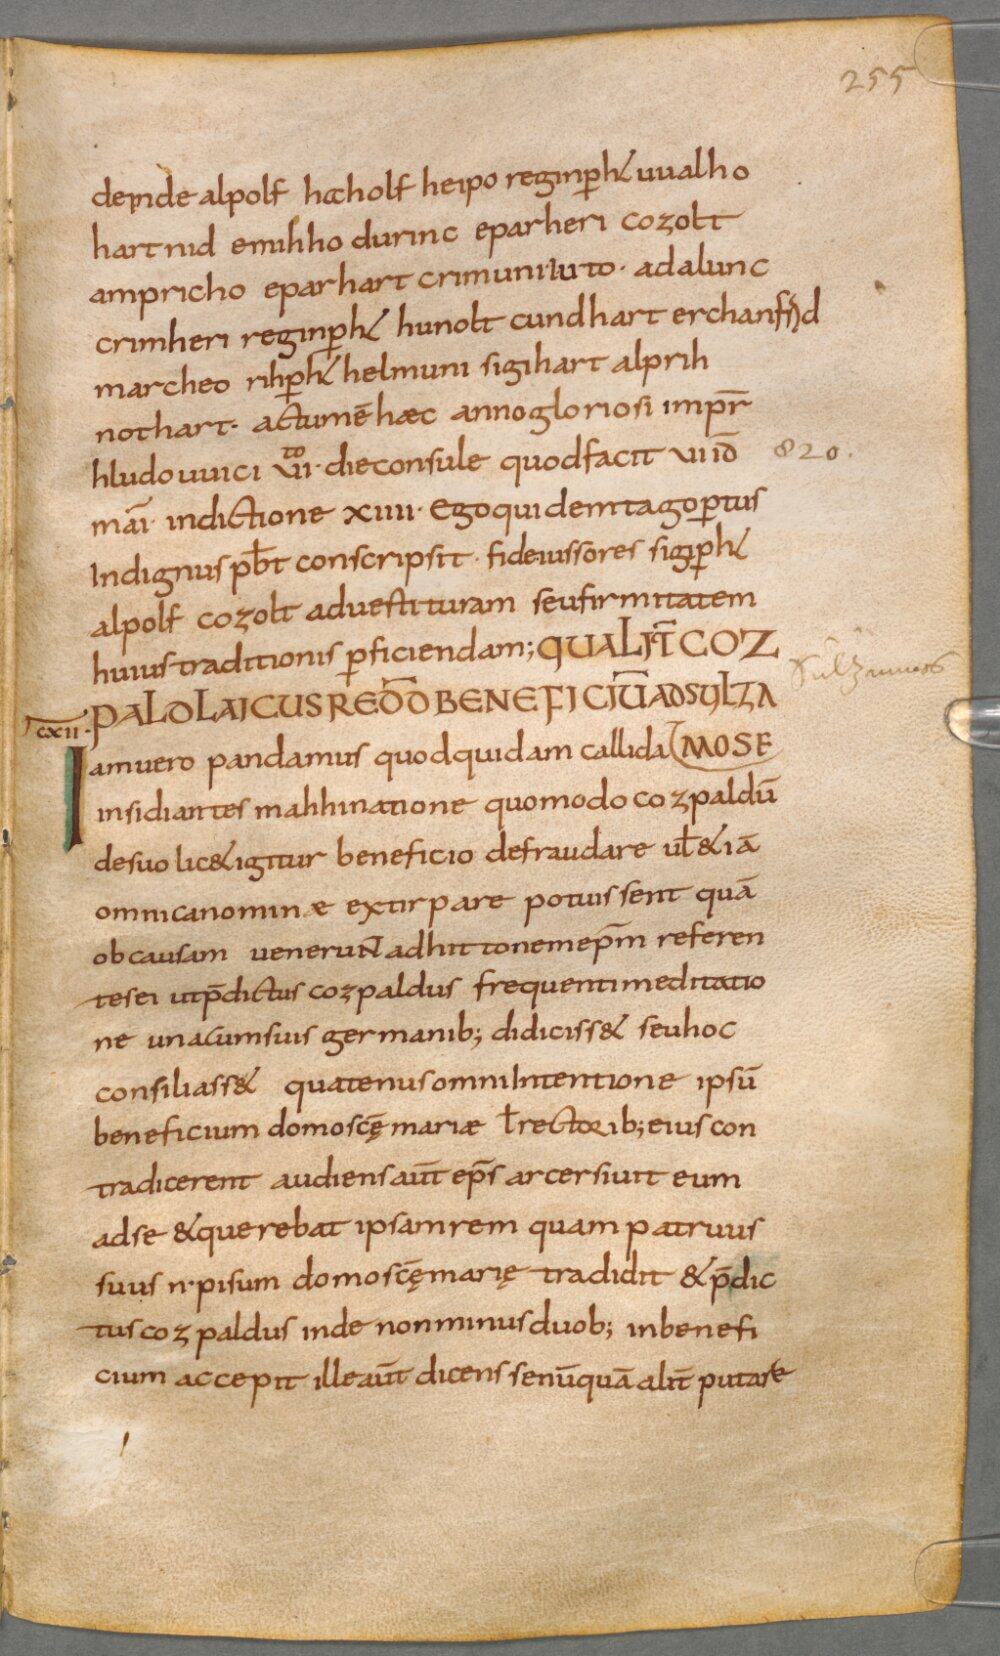 255
deinde alpolf hcholf heipo reginp̲h& uualho
hartnid emihho durinc eparheri cozolt
ampricho eparhart crimuni iuto· adalunc
crimheri reginp̲h& hunolt cundhart erchanfrid
marcheo rihp̲h& helmuni sigihart alprih
nothart· actumē hæc anno gloriosi imp̄r
hludouuici vi^to· die consule quod facit vii id̄ 820.
māi· indictione xiiii· Ego quidem tagop̲tus
Indignus pb̄t conscripsit· fideiussores sigip̲h&
alpolf cozolt aduestituram seu firmitatem
huius traditionis p̲ficiendam; QUALIT̄ COZ
PALD LAICUS REDD̄ BENEFICIŪ AD SULZA
MOSE
Sulzimoos
cxii·
Iam uero pandamus quod quidam callida
insidiantes mahhinatione quomodo cozpaldū
de suo lic& igitur beneficio defraudare ul̄ &iā
omni canominæ extirpare potuissent quā
ob causam uenerunt ad hittonem ep̄m referen
tes ei ut p̄dictus cozpaldus frequenti meditatio
ne una cum suis germanib; didiciss& seu hoc
consiliass& quatenus omni Intentione ipsū
beneficium domo sc̄ę mariæ l̄ rectorib; eius con
tradicerent audiens aūt ep̄s arcersiuit eum
ad se & querebat ipsam rem quam patruus
suus n·pisum domo sc̄ę marię tradidit & p̄dic
tus cozpaldus inde non minus duob; in benefi
cium accepit ille aūt dicens se nūquā alit̄ putaste